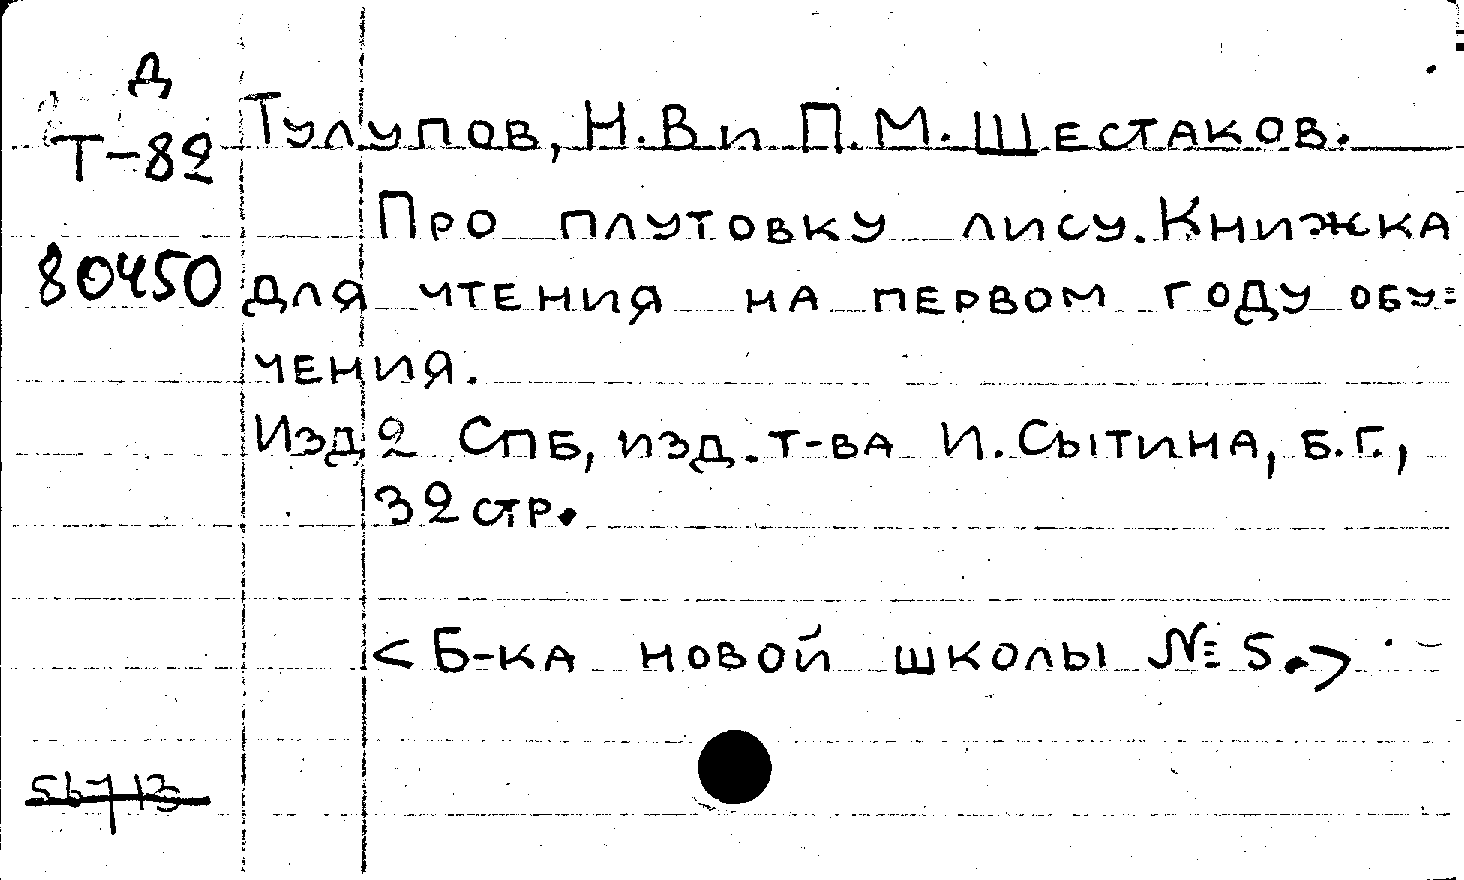 Д
Т-82
80450
Тулупов, Н.В и П.М. Шестаков.
Про плутовку лису. Книжка
для чтения на первом году обу=
чения.
Изд 2 СПБ, изд. т-ва И. Сытина, б.г.,
32 стр.
<Б-ка новой школы № 5.>
56713